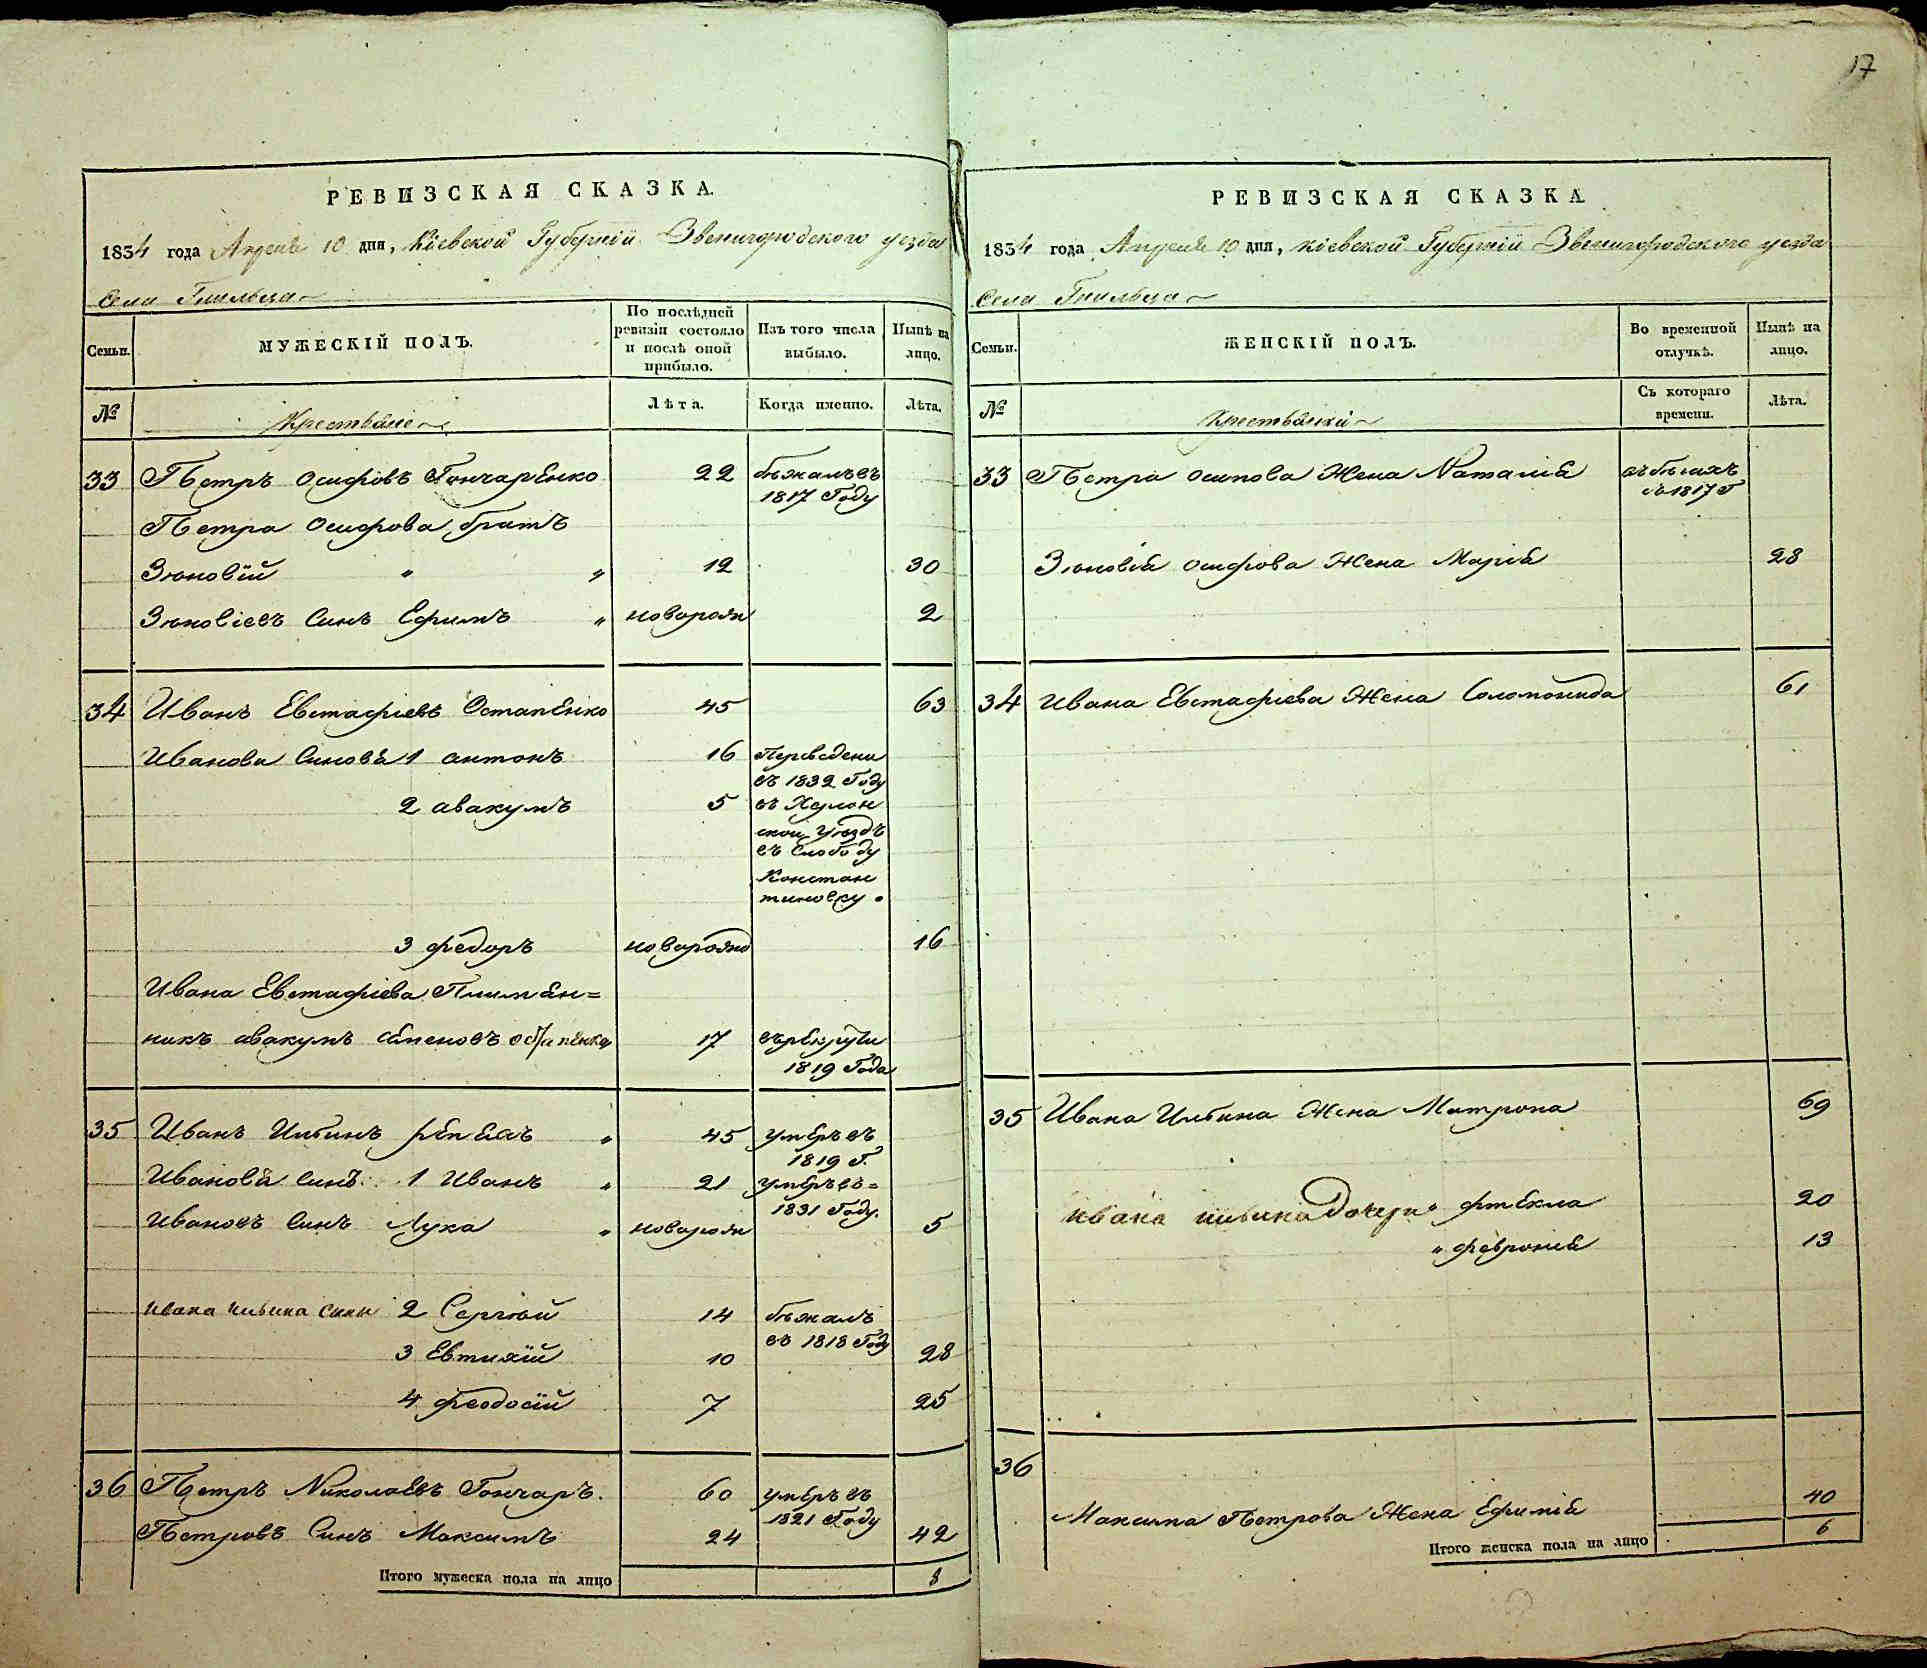 РЕВИЗСКАЯ СКАЗКА.
1834 года Апреля 10 дня, Кіевской Губерніи Звенигородского уезда
Села Гнильца
Семьи.
МУЖЕСКІЙ ПОЛЪ.
По послѣдней ревизіи состояло и послѣ оной прибыло.
Изъ того числа выбыло.
Нынѣ на лицо.
№
Крестьяне
Лѣта.
Когда именно.
Лѣта.
33 Петръ Осифовъ Гончаренко 22 бѣжалъ въ
1817 Году
Петра Осифова братъ
Зѣновій " " 12 30
Зѣновіевъ Синъ Ефимъ " новорож 2
34 Иванъ Евстафіевъ Остапенко 45 63
Иванови Синовя 1 антонъ 16 Переведени
въ 1832 Году
2 авакумъ 5 въ Херсон
ской уѣздъ
въ Слободу
Констан
тиновку.
3 федоръ новорожд 16
Ивана Евстафіева Плимян=
никъ авакумъ семеновъ остапенко 17 въ рекрути
1819 Года
35 Иванъ Ильинъ репяхъ " 45 умеръ въ
1819 Г.
Иванова синъ 1 Иванъ " 21 умеръ въ=
1831 Году.
Ивановъ Синъ Лука " новорож 5
ивана ильина сини 2 Сергѣй 14 бѣжалъ
въ 1818 Году
3 Евтихій 10 28
4 феодосій 7 25
36 Петръ Николаевъ Гончаръ. 60 умеръ въ
1821 Году
Петровъ Синъ Максимъ 24 42
Итого мужеска пола на лицо 8
17
РЕВИЗСКАЯ СКАЗКА
1834 года Апреля 10 дня, кіевской Губерніи Звенигородского уезда
Села Гнильца
Семьи.
ЖЕНСКІЙ ПОЛЪ.
Во временной отлучкѣ.
Нынѣ на лицо.
№
Крестьянки
Съ котораго времени.
Лѣта.
33 Петра осипова Жена Наталія въ бѣгахъ
съ 1817 Г
Зѣновія осифова Жена Марія 28
34 Ивана Евстафіева Жена Соломонида 61
35 Ивана Ильина Жена Матрона 69
ивана ильина Дочери " фтекла 20
" февронія 13
36
Максима Петрова Жена Ефимія 40
Итого женска пола на лицо 6